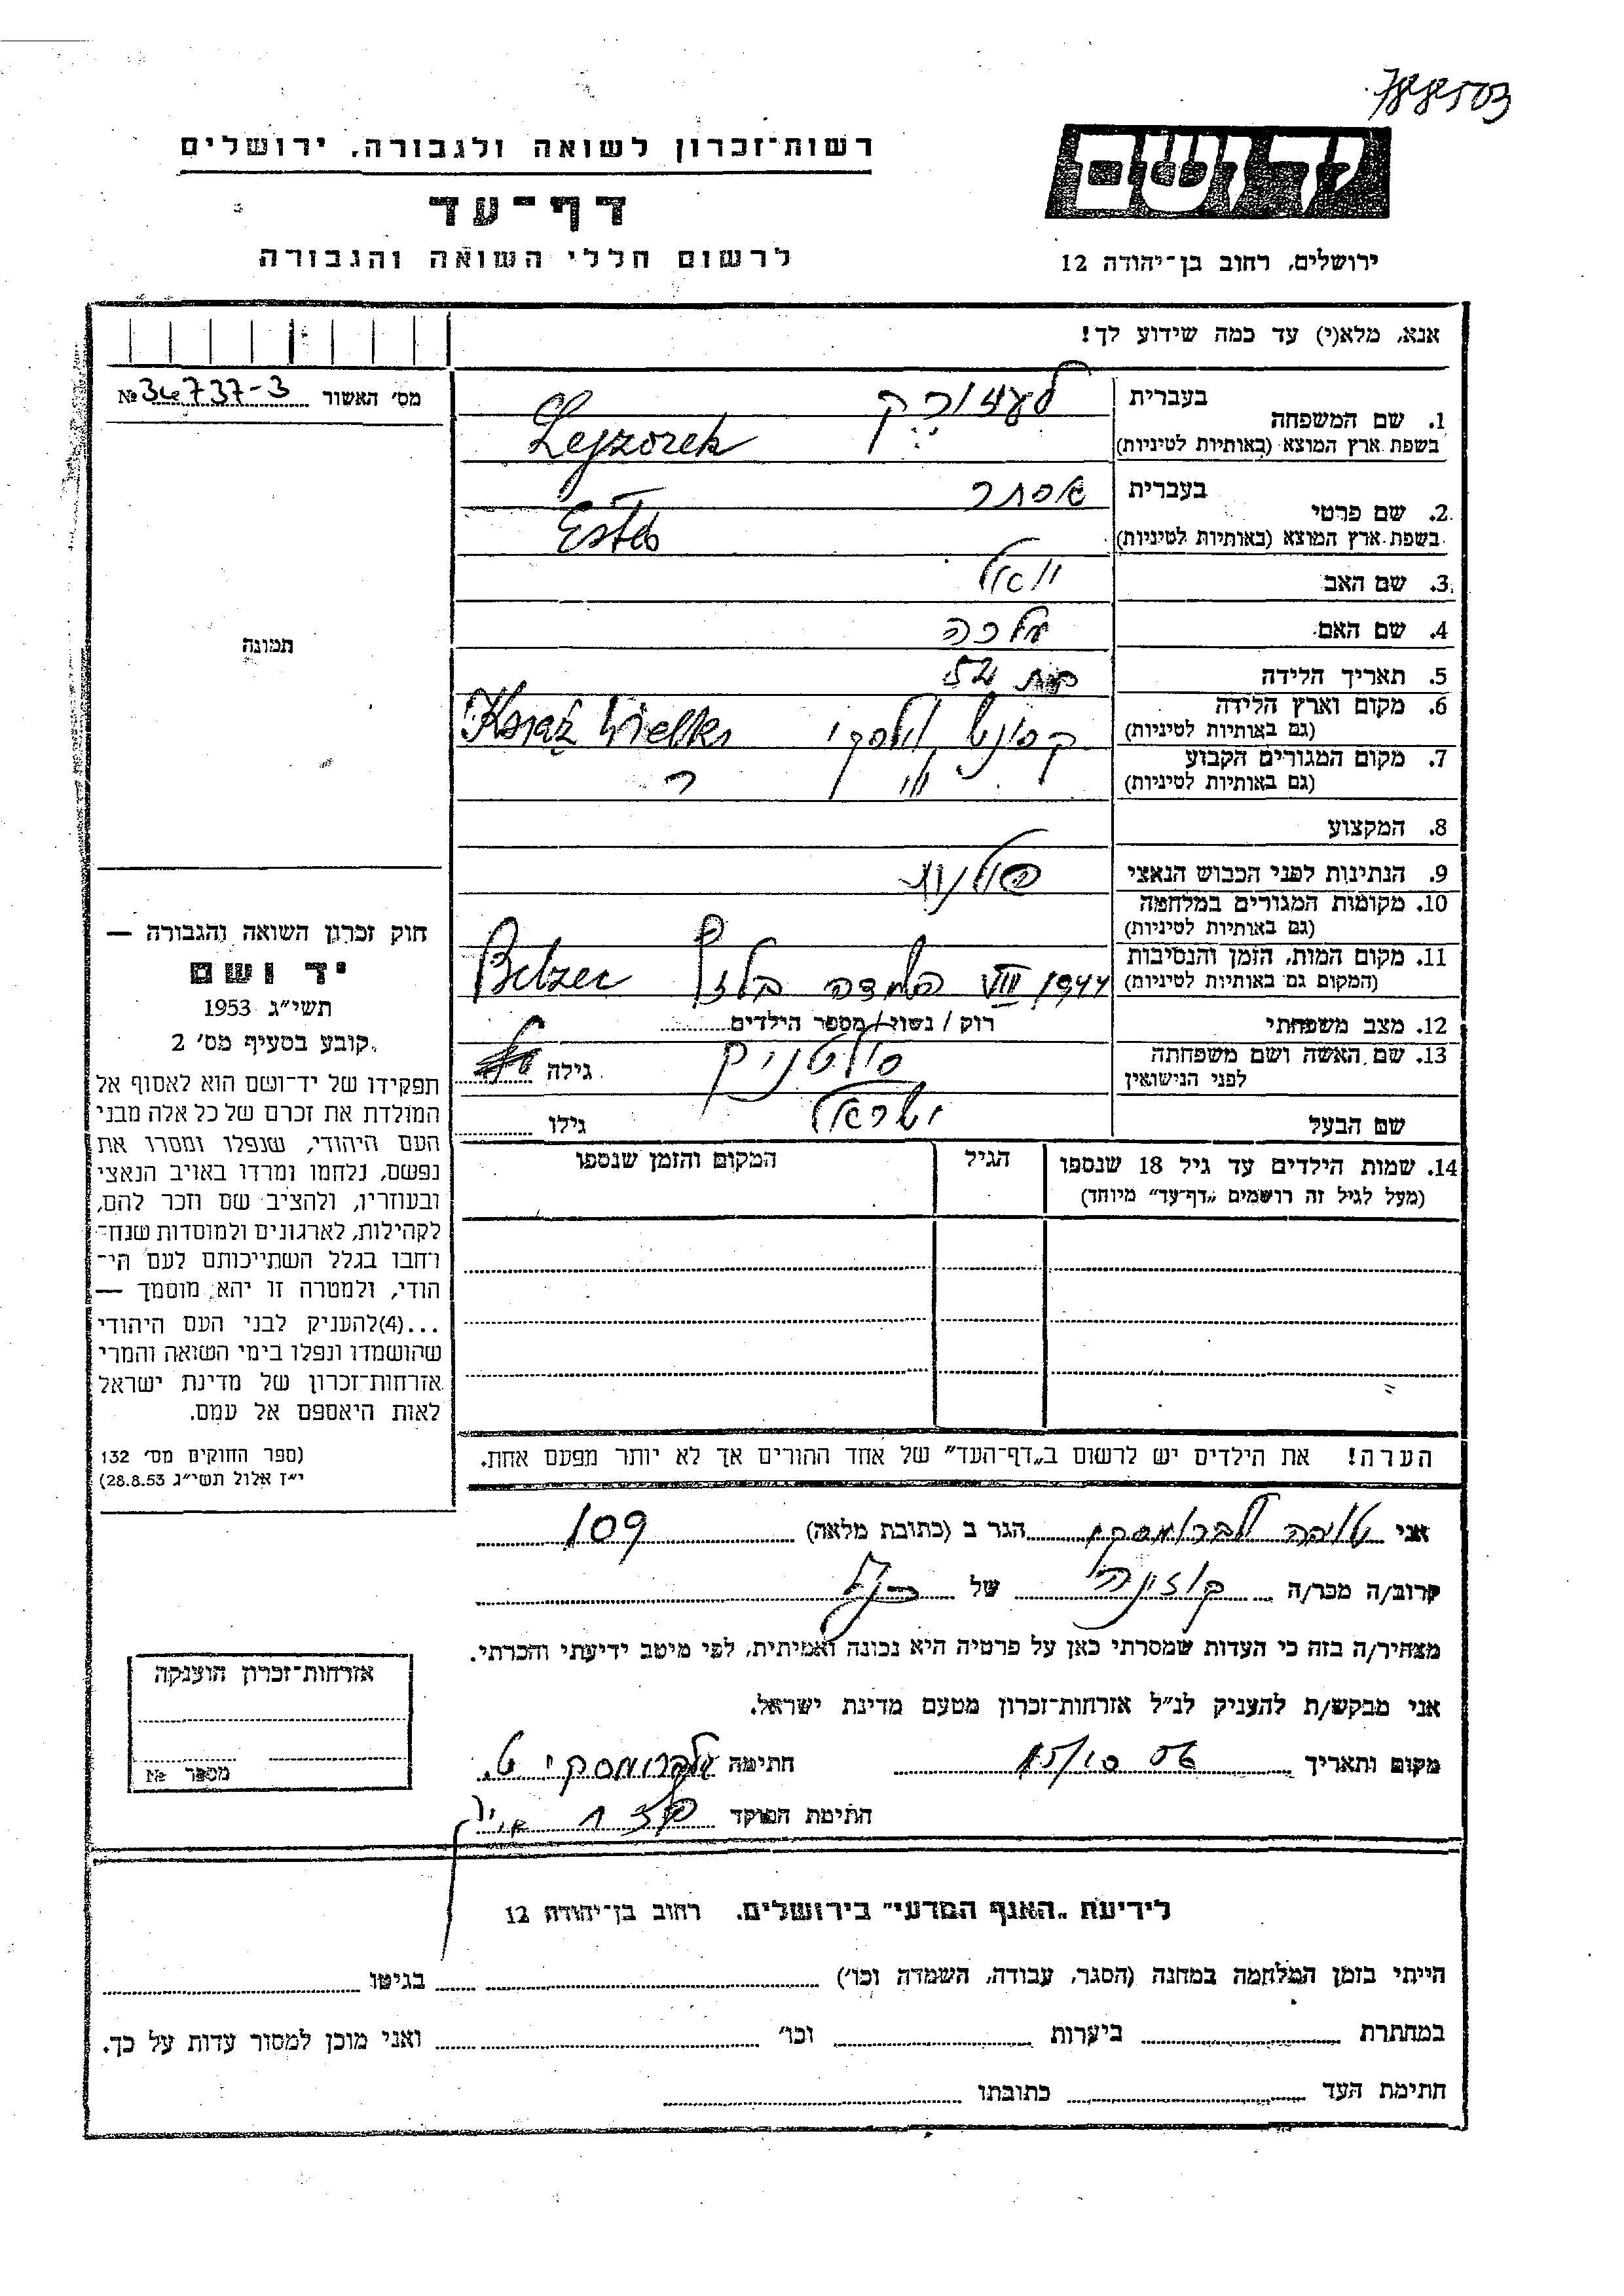 788503
רשות־זכרון לשואה ולגבורה, ירושלים
יד ושם
דף־עד
לרשום חללי השואה והגבורה
ירושלים, רחוב בן־יהודה 12
אנא, מלא(י) עד כמה שידוע לך!
מס׳ האשור №
1. שם המשפחה
בעברית
בשפת ארץ המוצא (באותיות לטיניות)
Lejzorek
2. שם פרטי
בעברית אסתר
בשפת ארץ המוצא (באותיות לטיניות)
3. שם האב יואל
4. שם האם מלכה
5. תאריך הלידה
6. מקום וארץ הלידה
(גם באותיות לטיניות)
Wielki
7. מקום המגורים הקבוע
(גם באותיות לטיניות)
8. המקצוע
9. הנתינות לפני הכבוש הנאצי
10. מקומות המגורים במלחמה
(גם באותיות לטיניות)
11. מקום המות, הזמן והנסיבות
(המקום גם באותיות לטיניות)
VIII 1944 בלזץ Belzec
12. מצב משפחתי רוק / נשוי / מספר הילדים
13. שם האשה ושם משפחתה
לפני הנישואין
סולטניק גילה
שם הבעל ישראל גילו
14. שמות הילדים עד גיל 18 שנספו
(מעל לגיל זה רושמים „דף־עד״ מיוחד)
הגיל
המקום והזמן שנספו
תמונה
חוק זכרון השואה והגבורה —
יד ושם
תשי״ג 1953
קובע בסעיף מס׳ 2
תפקידו של יד־ושם הוא לאסוף אל
המולדת את זכרם של כל אלה מבני
העם היהודי, שנפלו ומסרו את
נפשם, נלחמו ומרדו באויב הנאצי
ובעוזריו, ולהציב שם וזכר להם,
לקהילות, לארגונים ולמוסדות שנח־
רחבו בגלל השתייכותם לעם הי־
הודי, ולמטרה זו יהא מוסמך —
...(4)להעניק לבני העם היהודי
שהושמדו ונפלו בימי השואה והמרי
אזרחות־זכרון של מדינת ישראל
לאות היאספם אל עמם.
(ספר החוקים מס׳ 132
י״ז אלול תשי״ג 28.8.53)
הערה! את הילדים יש לרשום ב„דף־העד״ של אחד ההורים אך לא יותר מפעם אחת.
אני הגר ב (כתובת מלאה) 109
קרוב/ה מכר/ה קוזינה של
מצהיר/ה בזה כי העדות שמסרתי כאן על פרטיה היא נכונה ואמיתית, לפי מיטב ידיעתי והכרתי.
אני מבקש/ת להעניק לנ״ל אזרחות־זכרון מטעם מדינת ישראל.
מקום ותאריך 15/10 56 חתימה
חתימת הפוקד
אזרחות־זכרון הוענקה
מספר №
לידיעת „האגף המדעי״ בירושלים, רחוב בן־יהודה 12
הייתי בזמן המלחמה במחנה (הסגר, עבודה, השמדה וכו׳) בגיטו
במחתרת ביערות וכו׳ ואני מוכן למסור עדות על כך.
חתימת העד כתובתו